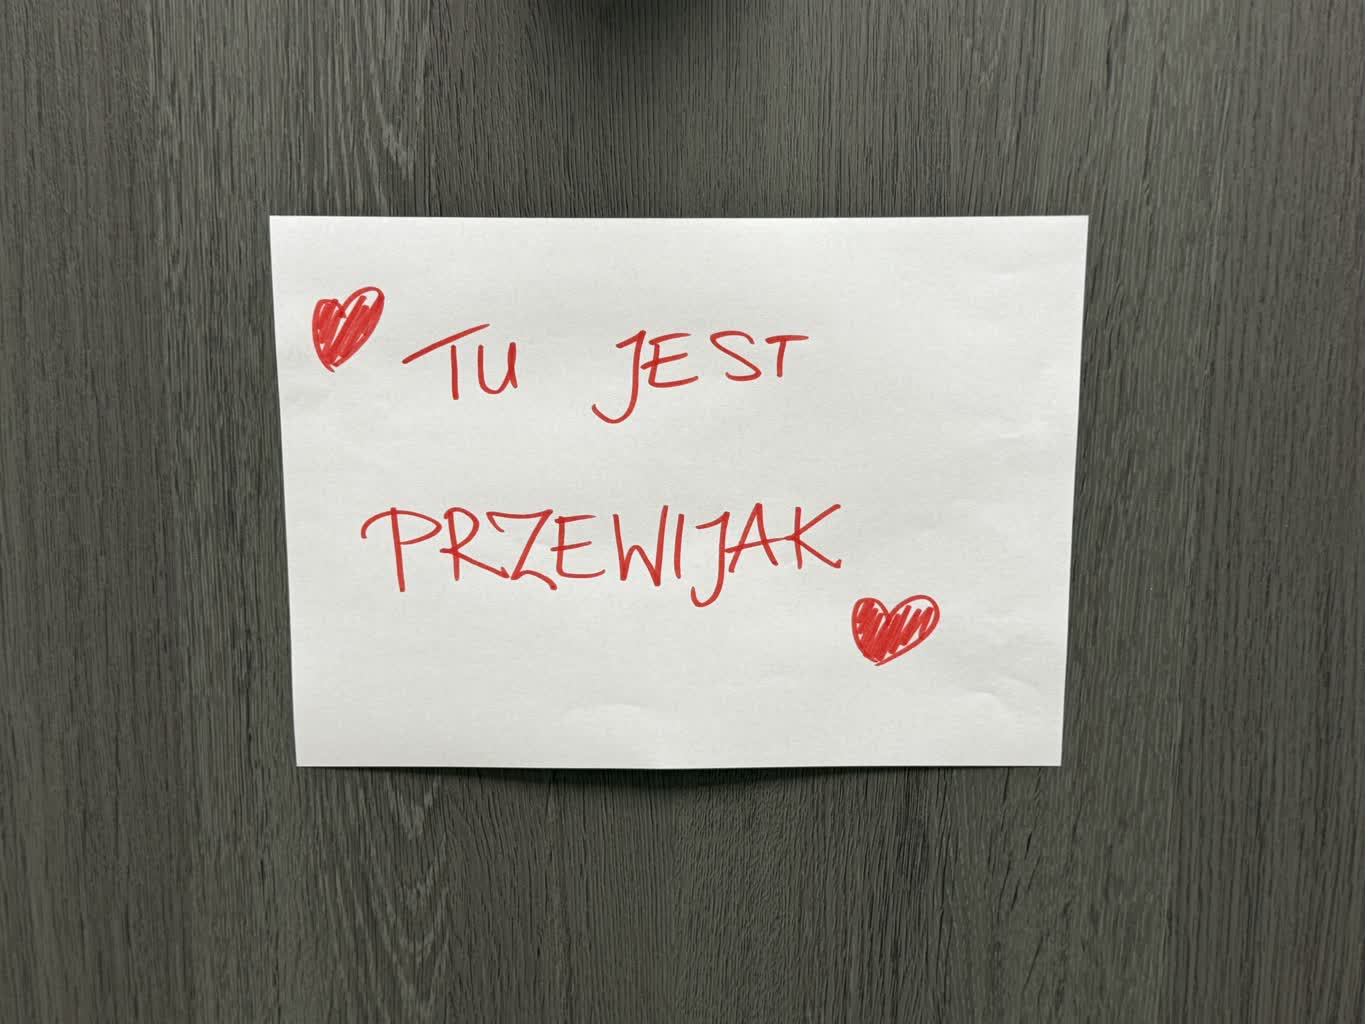 TU JEST
PRZEWIJAK